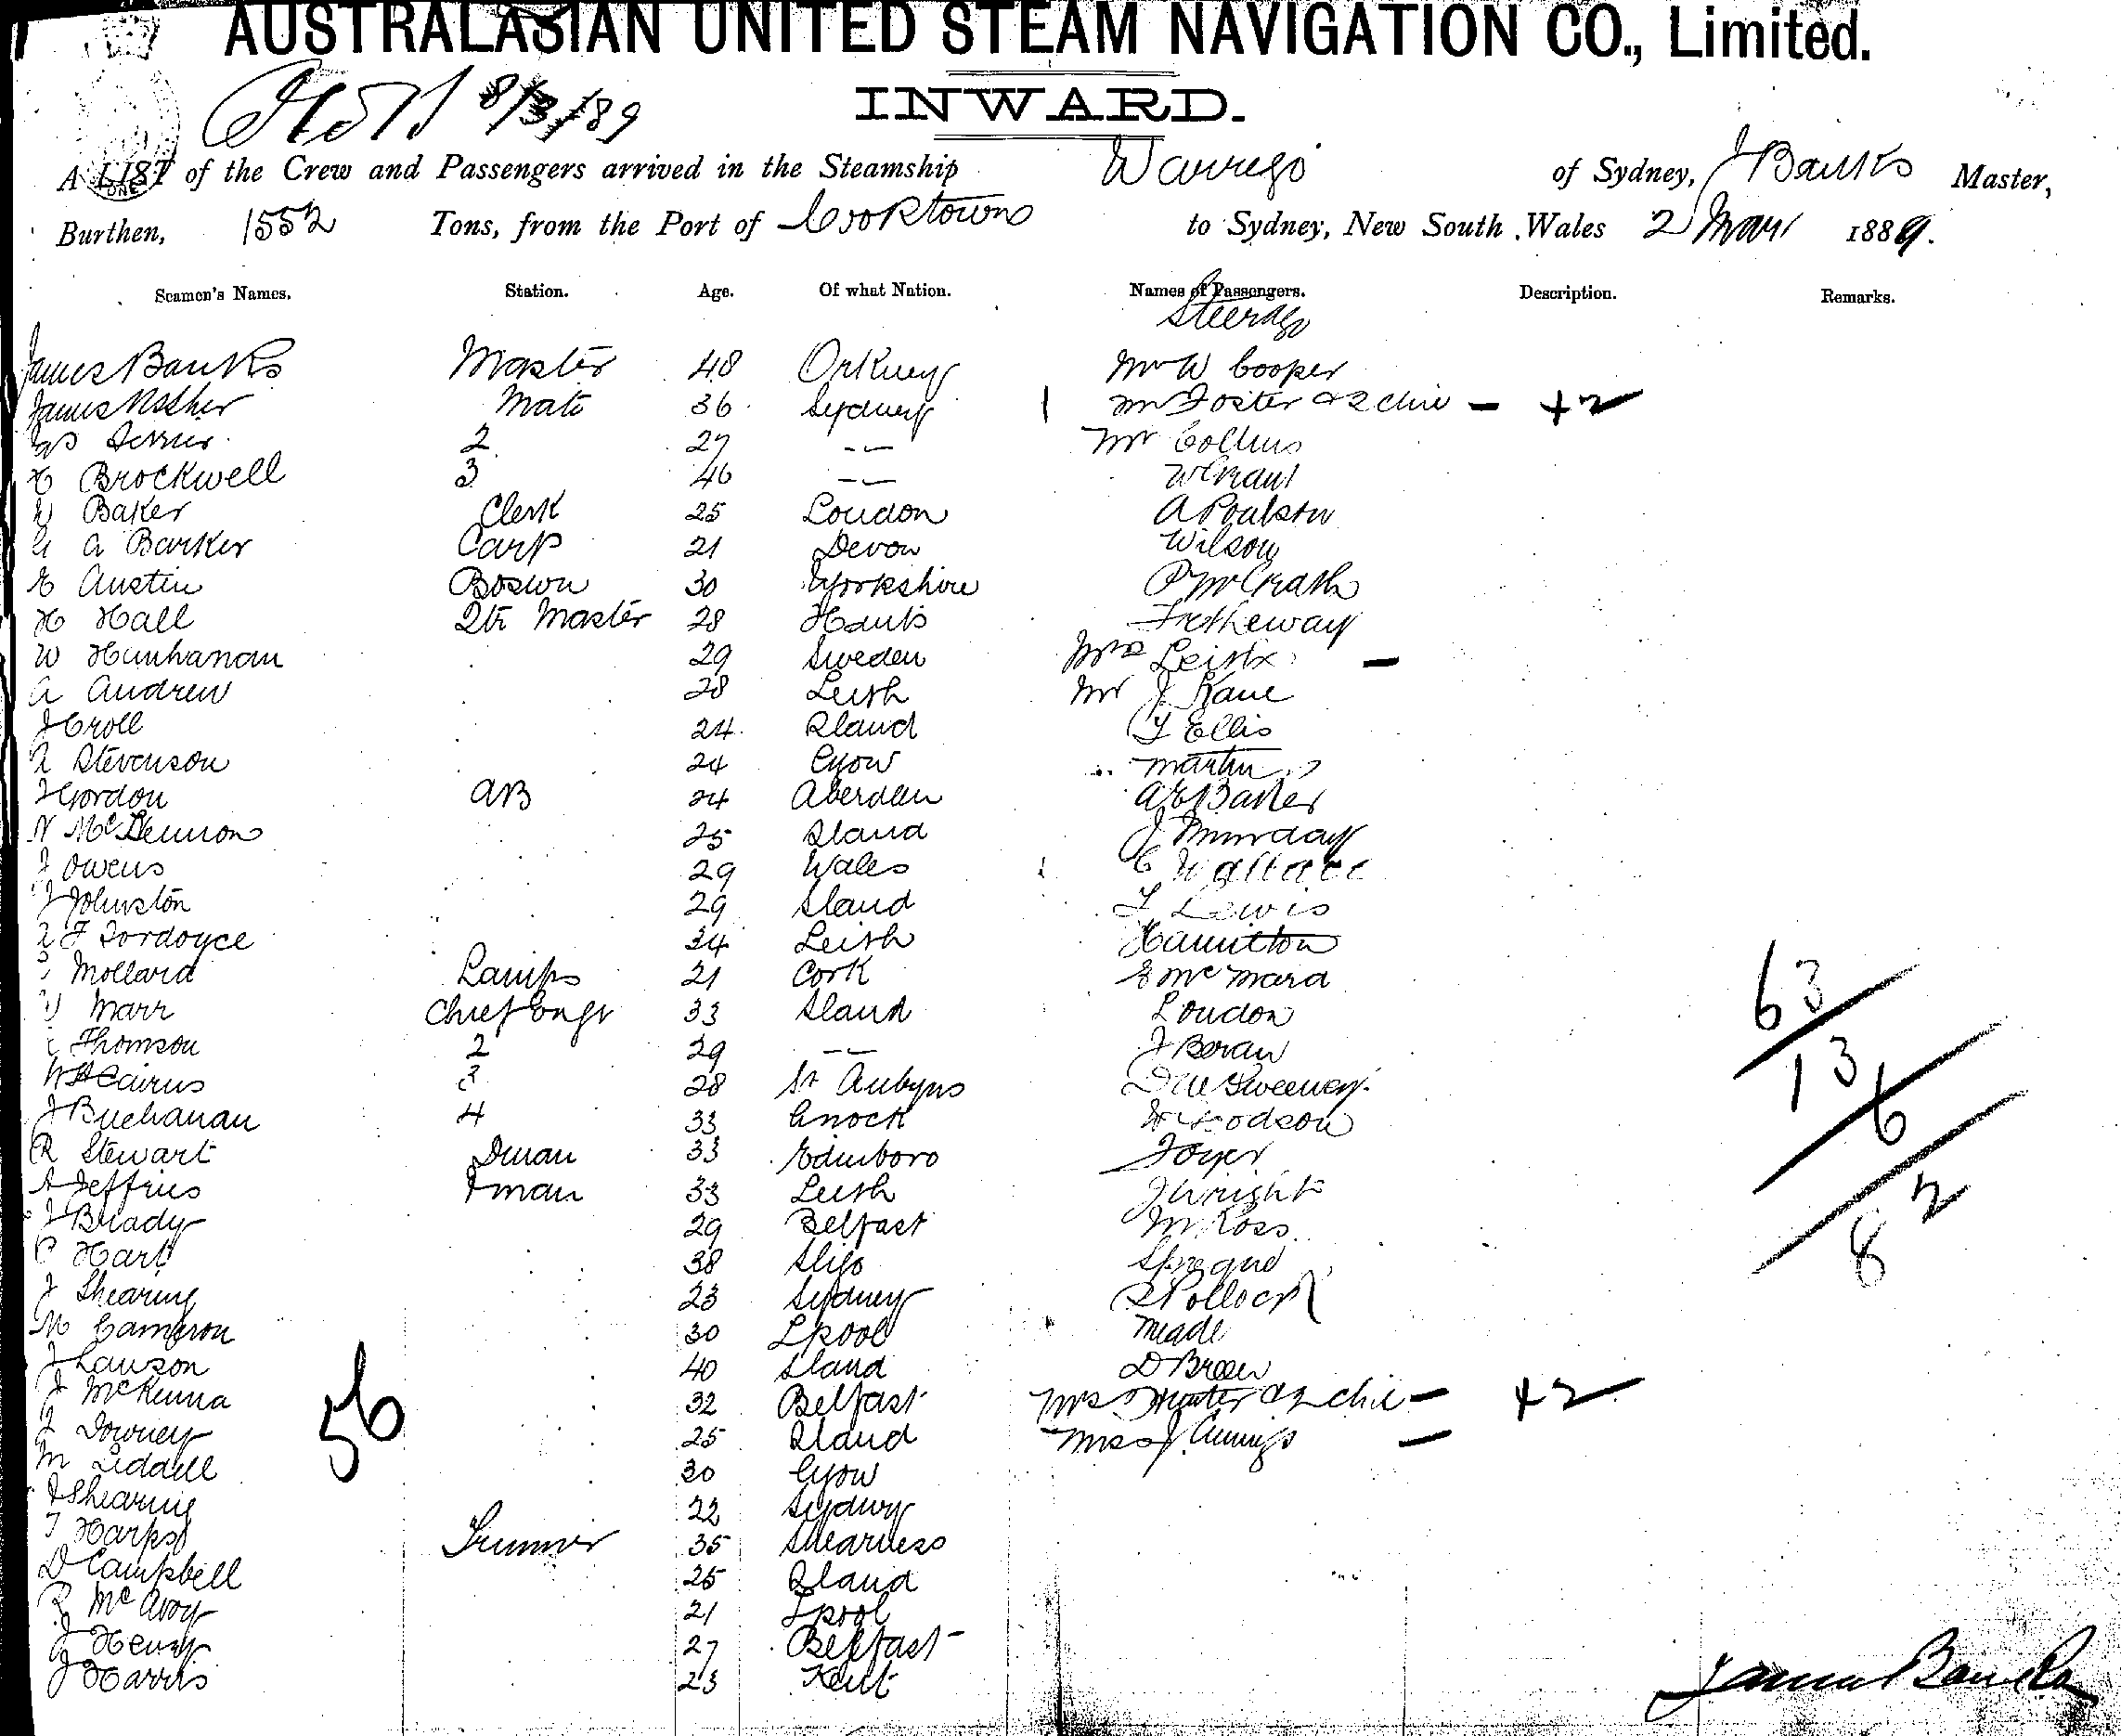 AUSTRALASIAN UNITED STEAM NAVIGATION CO., Limited.
8/3/89
INWARD.
A LIST of the Crew and Passengers arrived in the Steamship Warrego of Sydney, J Banks Master,
Burthen, 1552 Tons, from the Port of Cooktown to Sydney, New South Wales 2 Mar 1889.
Seamen's Names. Station. Age. Of what Nation. Names of Passengers. Description. Remarks.
Steerage
James Banks Master 48 Orkney Mr W Cooper
James Mather Mate 36 Sydney 1 Mr Foster & 2 chil — +2
2 27 -- Mr Collins
Brockwell 3 46 -- W Grant
Baker Clerk 25 London A Poulston
G A Barker Carp 21 Devon Wilson
E Austin Boswn 30 Yorkshire P McGrath
H Hall Qtr Master 28 Hants Tretheway
W 29 Sweden Mrs —
A Andrew 28 Leith Mr J Kane
J Croll 24 Sland Ellis
A Stevenson 24 Gow Martin
J Gordon AB 24 Aberdeen A E Baker
N McLennon 25 Sland J Munday
J Owens 29 Wales C Wallace
J Johnston 29 Sland Lewis
F Fordoyce 34 Leith Hamilton
Mollard Lamps 21 Cork McMara
Marr Chief Engr 33 Sland London
Thomson 2 29 -- J Boran
Cairns 3 28 St Aubyns Sweeney
J Buchanan 4 33 Gnock Hodson
R Stewart Dman 33 Edinboro
A Jeffries Fman 33 Leith J Wright
J Brady 29 Belfast M Ross
P Hart 38 Sligo Sprague
J Shearing 23 Sydney R Pollock
M Cameron 30 Lpool Meade
J Lawson 40 Sland D Breen
J McKenna 32 Belfast Mrs Hunter & 2 chil — +2
Downey 25 Sland Miss —
M Liddell 30 Gow
J Shearing 22 Sydney
T Trimmer 35 Sheerness
D Campbell 25 Sland
R McAvoy 21 Lpool
J Henry 27 Belfast
J Harris 23 Kent
56
63
13
6
82
James Banks